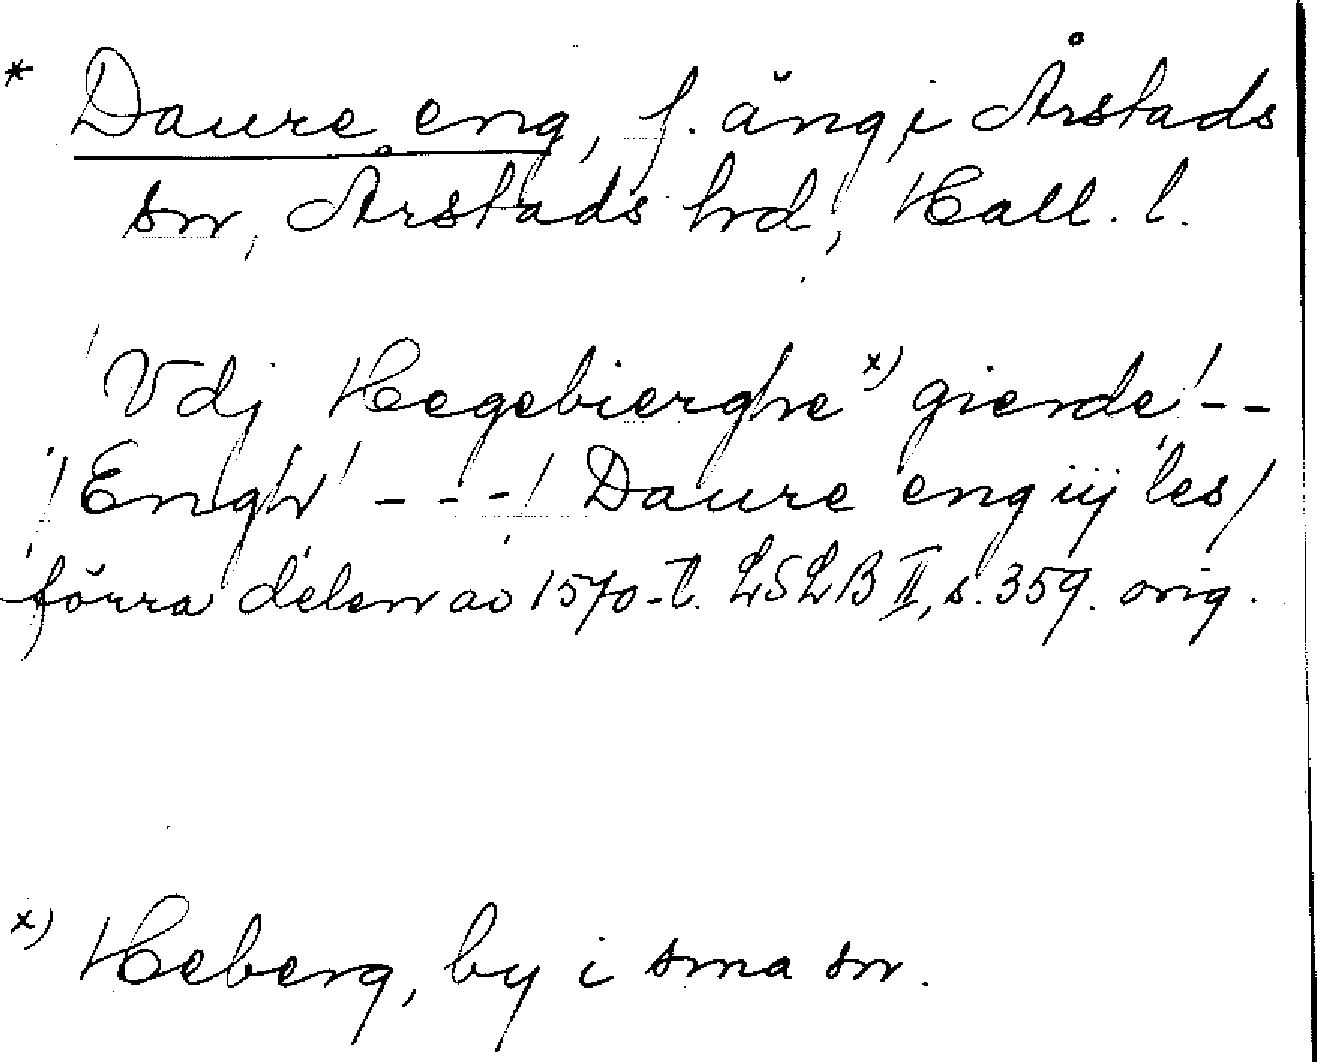 * Daure eng, f. äng i Årstads
sn, Årstads hd, Hall. l.
Vdj Hegebierghe x) gierde! - -
/ Engh - - - / Daure eng iij les /
förra delen av 1570-t. LSLB II, s. 359. orig.
x) Heberg, by i sma sn.